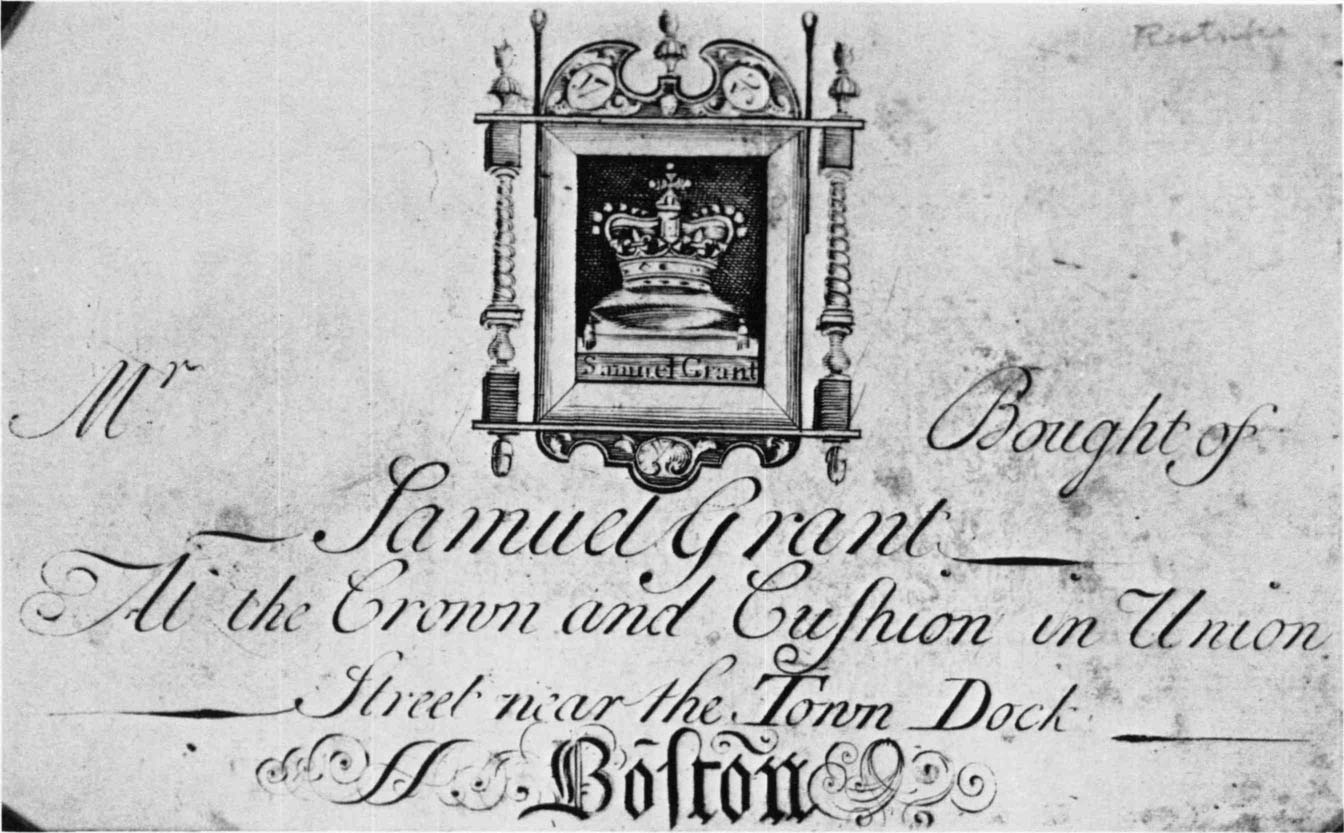 Restrike
Samuel Grant
Mr Bought of
Samuel Grant
At the Crown and Cuſhion in Union
Street near the Town Dock
Bōſtōn